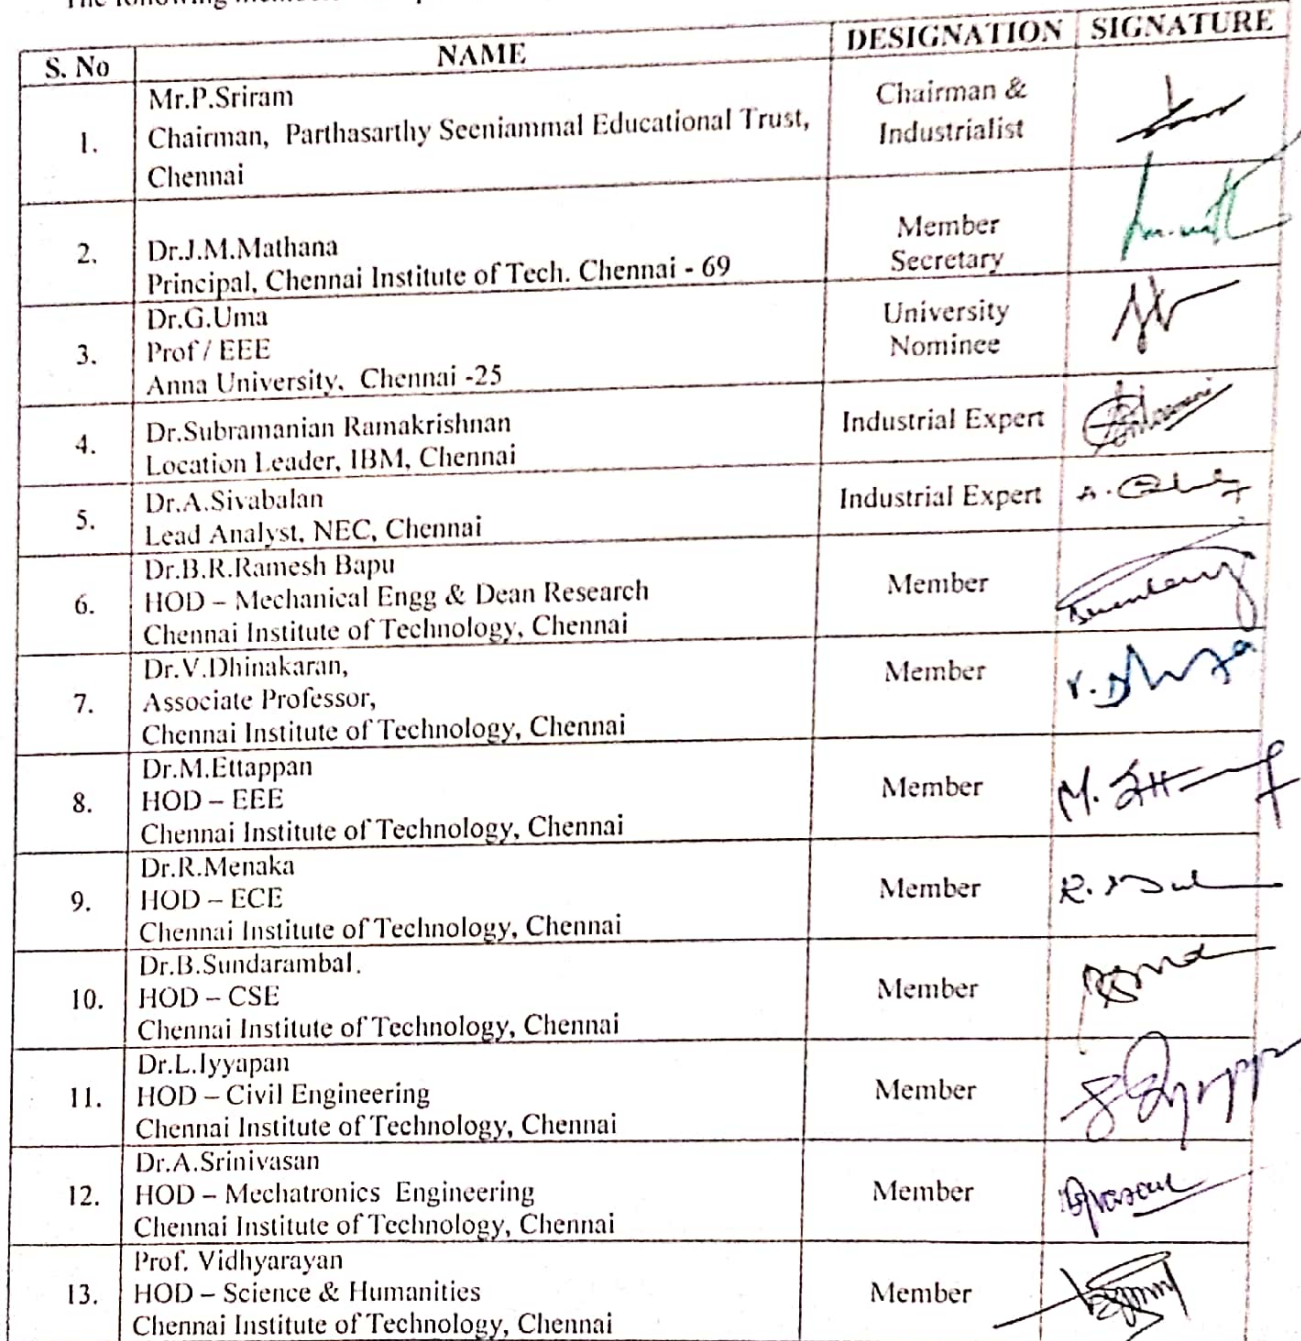 S. No NAME DESIGNATION SIGNATURE
1. Mr.P.Sriram
Chairman, Parthasarthy Seeniammal Educational Trust,
Chennai
Chairman &
Industrialist
2. Dr.J.M.Mathana
Principal, Chennai Institute of Tech. Chennai - 69
Member
Secretary
3. Dr.G.Uma
Prof / EEE
Anna University, Chennai -25
University
Nominee
4. Dr.Subramanian Ramakrishnan
Location Leader, IBM, Chennai
Industrial Expert
5. Dr.A.Sivabalan
Lead Analyst, NEC, Chennai
Industrial Expert
6. Dr.B.R.Ramesh Bapu
HOD – Mechanical Engg & Dean Research
Chennai Institute of Technology, Chennai
Member
7. Dr.V.Dhinakaran,
Associate Professor,
Chennai Institute of Technology, Chennai
Member
8. Dr.M.Ettappan
HOD – EEE
Chennai Institute of Technology, Chennai
Member
9. Dr.R.Menaka
HOD – ECE
Chennai Institute of Technology, Chennai
Member
10. Dr.B.Sundarambal.
HOD – CSE
Chennai Institute of Technology, Chennai
Member
11. Dr.L.Iyyapan
HOD – Civil Engineering
Chennai Institute of Technology, Chennai
Member
12. Dr.A.Srinivasan
HOD – Mechatronics Engineering
Chennai Institute of Technology, Chennai
Member
13. Prof. Vidhyarayan
HOD – Science & Humanities
Chennai Institute of Technology, Chennai
Member